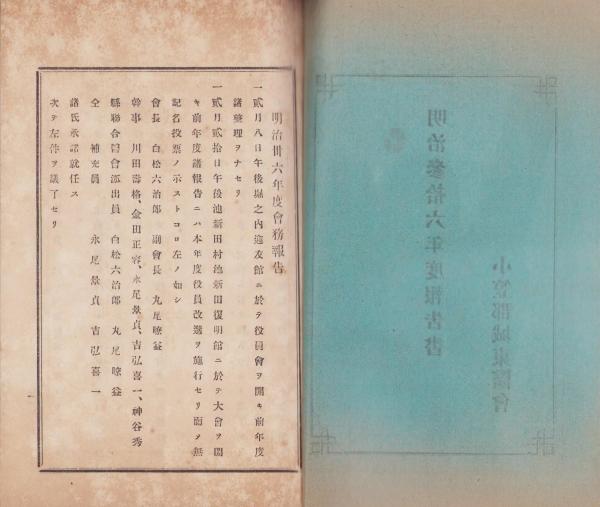 明治參拾六年度報告書
小笠郡城東醫會
明治卅六年度會務報告
一貳月八日午後堀之內迎友館ニ於テ役員會ヲ開キ前年度
諸整理ヲナセリ
一貳月貳拾日午後池新田村池新田復明館ニ於テ大會ヲ開
キ前年度諸報告ニハ本年度役員改選ヲ施行セリ而ヲ無
記名投票ノ示ストコロ左ノ如シ
會長 白松六治郎 副會長 丸尾暸益
幹事 川田壽格、金田正容、永尾景貞、吉弘喜一、神谷秀
縣聯合醫會派出員 白松六治郎 丸尾暸益
仝 補充員 永尾景貞 吉弘喜一
諸氏承諾就任ス
次テ左件ヲ議了セリ